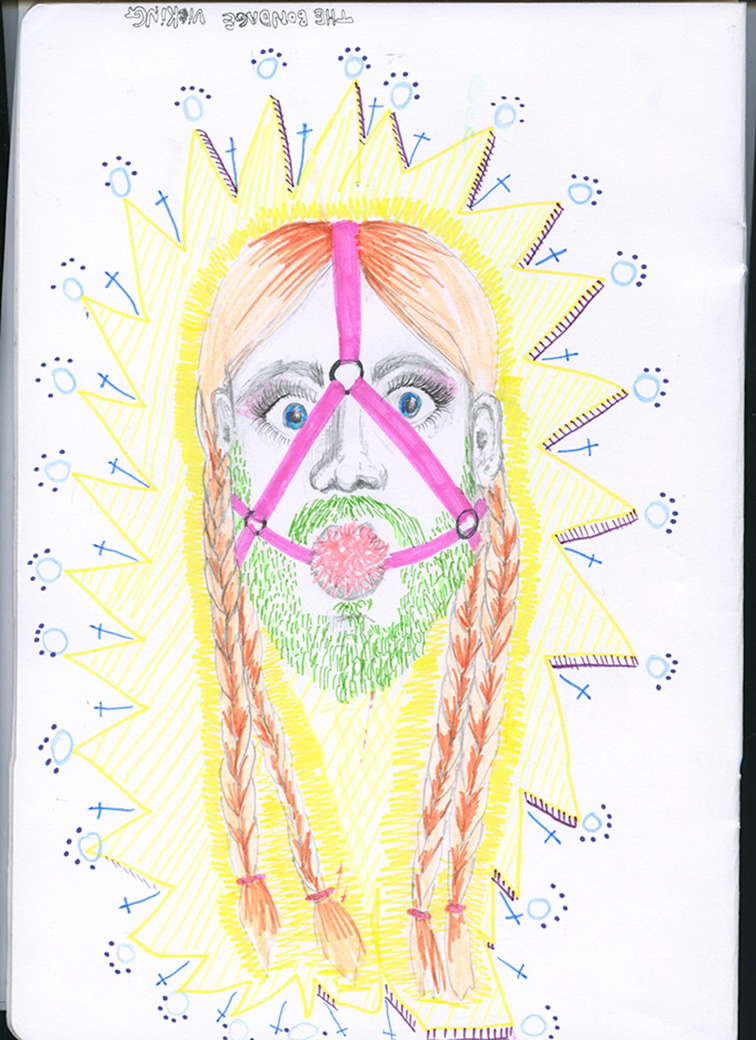 THE BONDAGE ViKING